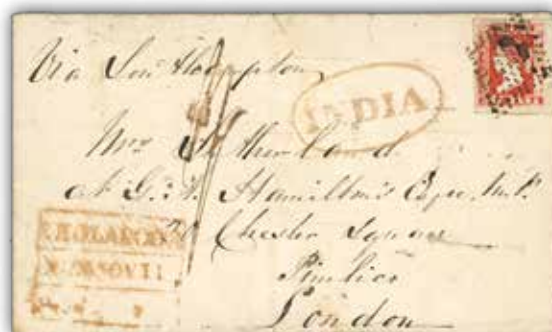 Via Southampton
INDIA
Mrs Sutherland
at G. A. Hamilton's Esqre, M.P.
Chester Square
Pimlico
London